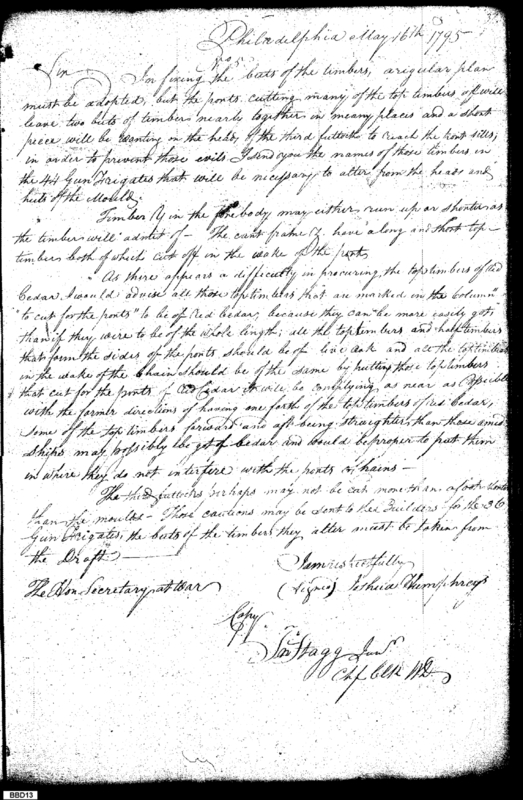 Philadelphia May 16th 1795
Sir
In fixing the buts of the timbers, a rigular plan
must be adopted, but the ports cutting many of the top timbers off will
leave two buts of timbers nearly together in meany places and a short
peece will be wanting in the head of the third futtocks to reach the port sills,
in order to prevent those evils I send you the names of those timbers in
the 44 Gun Frigates that will be necessary to alter from the heads and
huts of the Moulds.
Timber Y in the fore body may either run up or shorter as
the timber will admit of - The cant frame have a long and short top-
timbers both of which cut off in the wake of the ports
As there appears a difficulty in procuring the top timbers of Red
Cedar, I would advise all those top timbers that are marked in the Column "
"to cut for the ports" to be of red Cedar, because they can be more easily got
than if they were to be of the whole length; all the top timbers and half timbers
that form the sides of the ports should be of live oak and all the top timbers
in the wake of the Chain should be of the same by putting those top timbers
that cut for the ports of red Cedar it will be complying as near as Possible
with the former directions of having one forth of the top timbers of red Cedar,
some of the top timbers forward and aft being straighter than those amid
ships may possibly be got of Cedar and would be proper to put them
in where they do not interfere with the ports or chains -
The third futtocks perhaps may not be cut more than a foot
than the moulds - Those cautions may be sent to the Builders for the 36
Gun Frigates, the buts of the timbers they alter must be taken from
the Draft
I am respectfully
The Hon Secretary at War
(signed) Joshua Humphreys
Copy
Jno Stagg Junr.
Chf Clk WD
BBD13